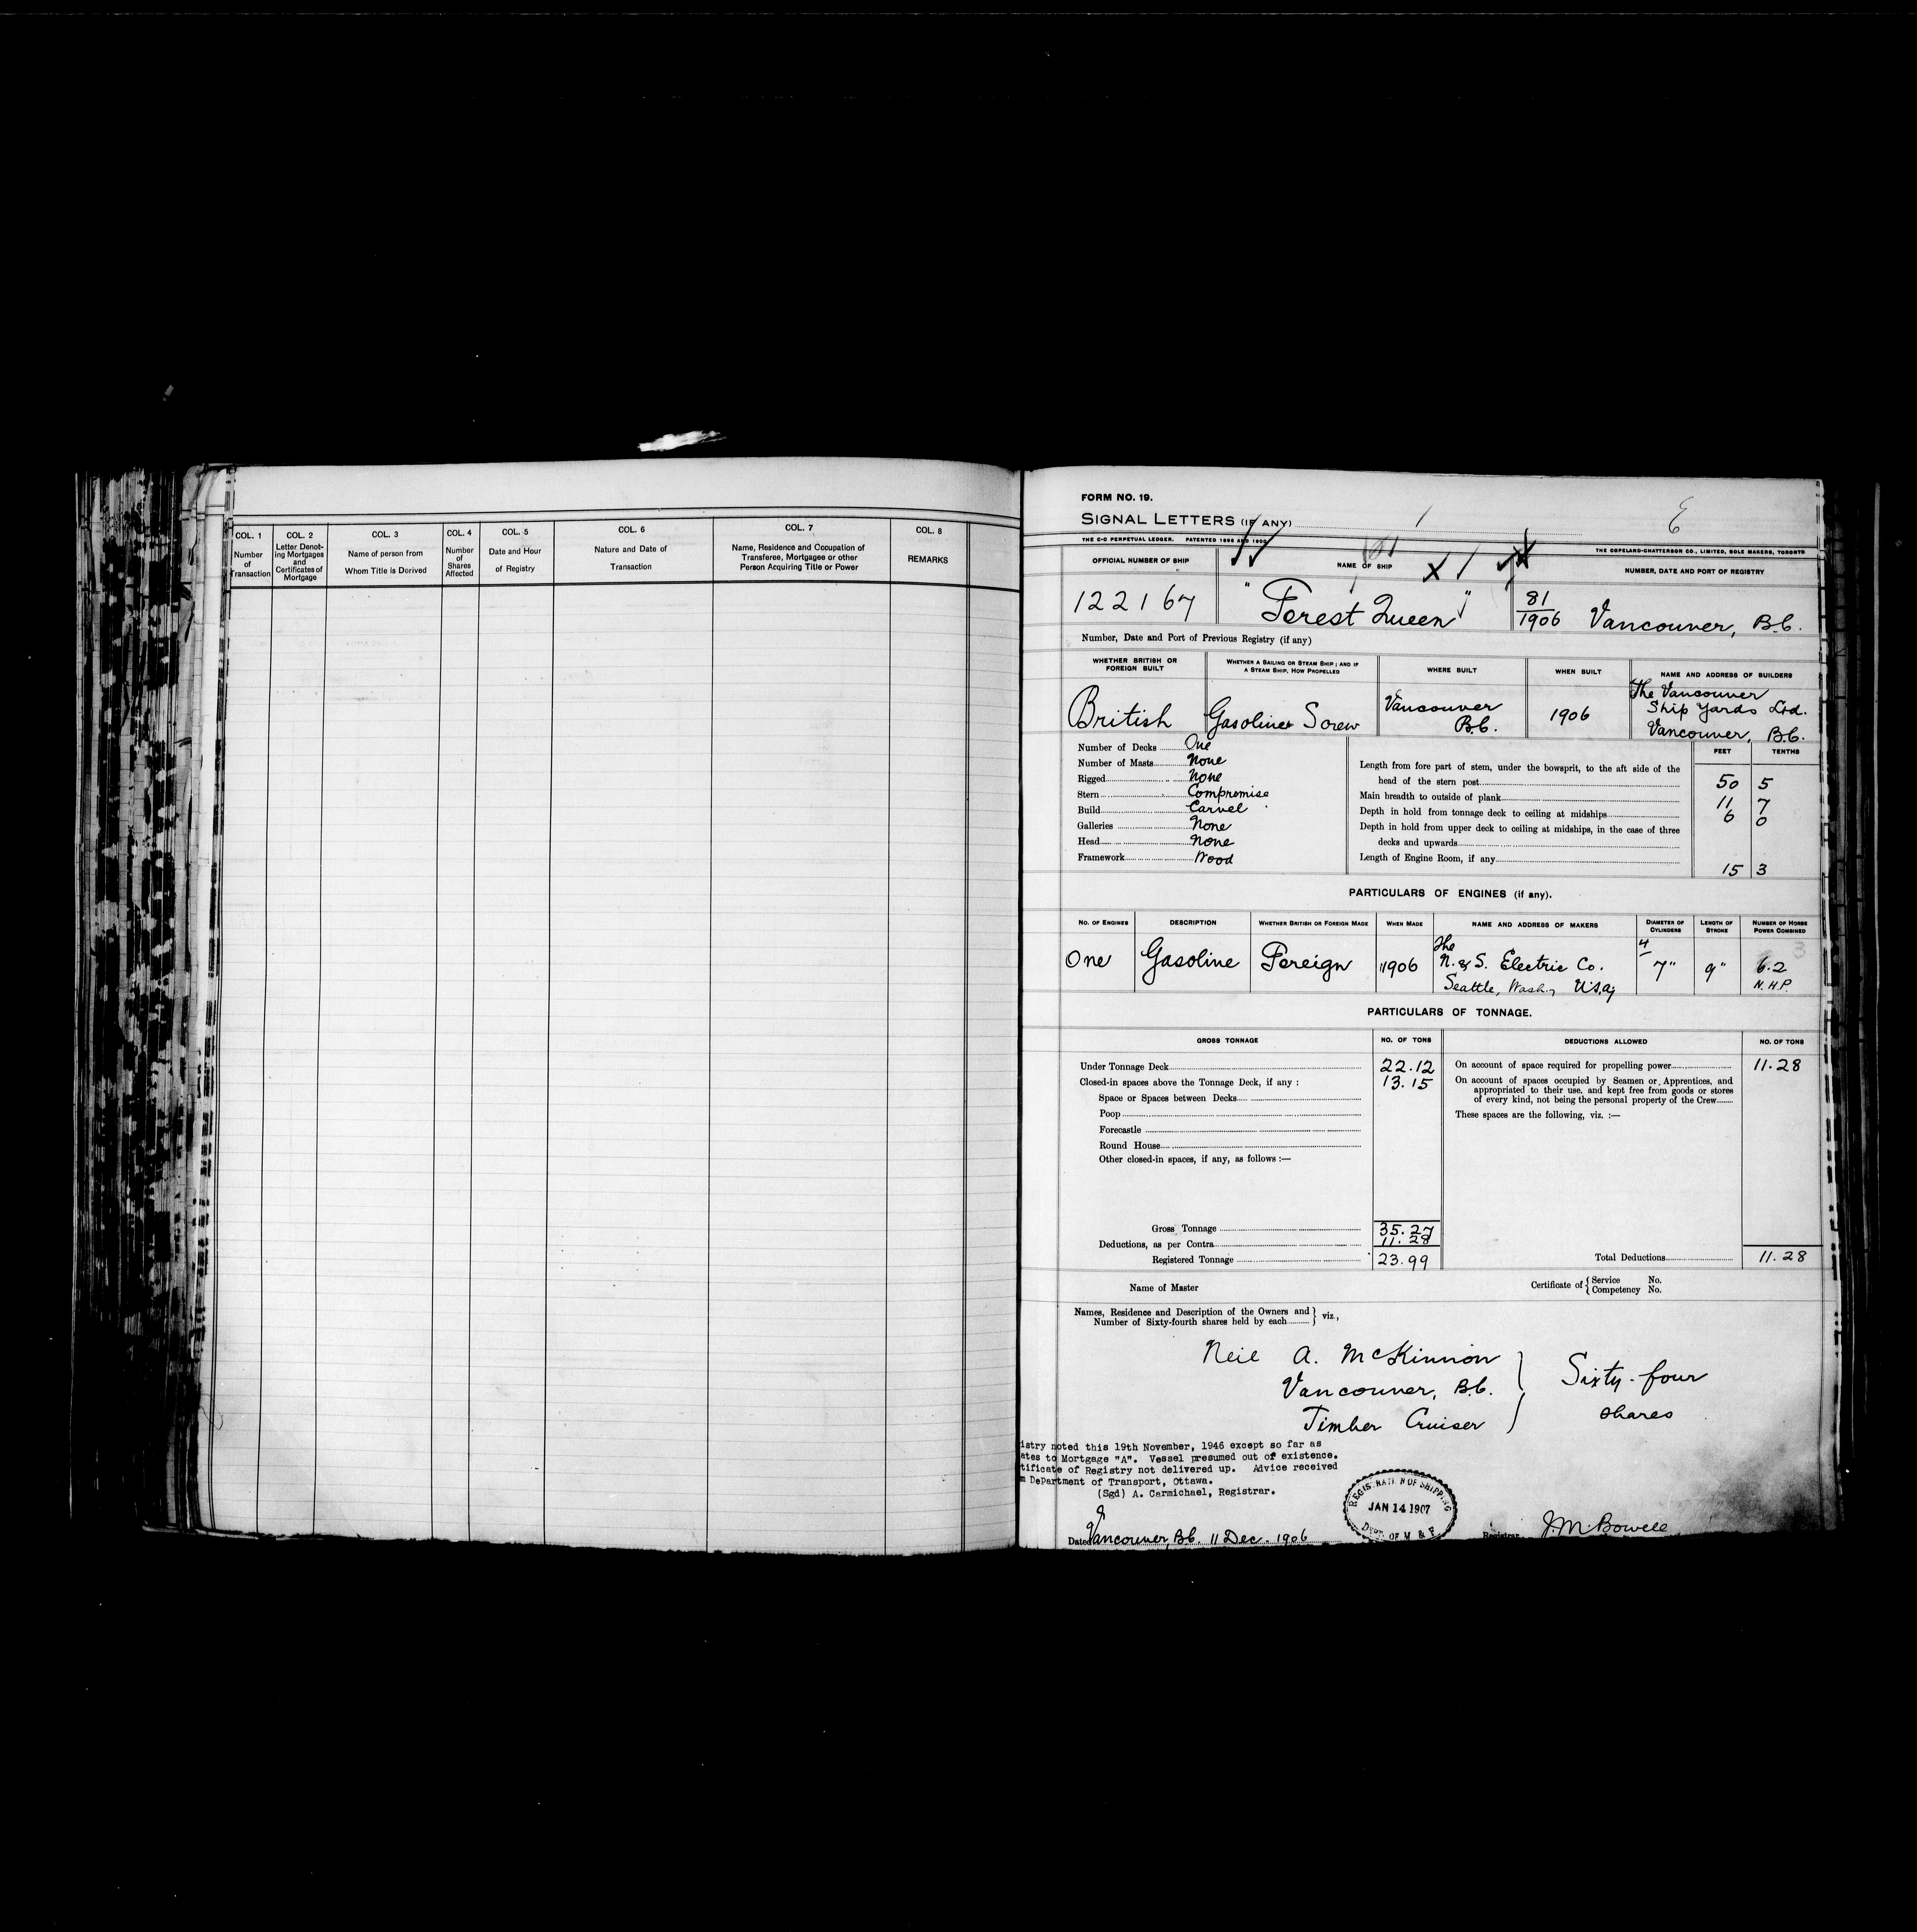 COL. 1
Number
of
Transaction
COL. 2
Letter Denot-
ing Mortgages
and
Certificates of
Mortgage
COL. 3
Name of person from
Whom Title is Derived
COL. 4
Number
of
Shares
Affected
COL. 5
Date and Hour
of Registry
COL. 6
Nature and Date of
Transaction
COL. 7
Name, Residence and Occupation of
Transferee, Mortgagee or other
Person Acquiring Title or Power
COL. 8
REMARKS
FORM NO. 19.
SIGNAL LETTERS (IF ANY)
THE C-C PERPETUAL LEDGER. PATENTED 1898 AND 1900
THE COPELAND-CHATTERSON CO., LIMITED, SOLE MAKERS, TORONTO
OFFICIAL NUMBER OF SHIP
NAME OF SHIP
NUMBER, DATE AND PORT OF REGISTRY
122167
"Forest Queen"
81
1906 Vancouver, B.C.
Number, Date and Port of Previous Registry (if any)
WHETHER BRITISH OR
FOREIGN BUILT
WHETHER A SAILING OR STEAM SHIP; AND IF
A STEAM SHIP, HOW PROPELLED
WHERE BUILT
WHEN BUILT
NAME AND ADDRESS OF BUILDERS
British
Gasoline Screw
Vancouver
B.C.
1906
The Vancouver
Ship Yards Ltd.
Vancouver, B.C.
Number of Decks One
Number of Masts None
Rigged None
Stern Compromise
Build Carvel
Galleries None
Head None
Framework Wood
FEET TENTHS
Length from fore part of stem, under the bowsprit, to the aft side of the
head of the stern post 50 5
Main breadth to outside of plank 11 7
Depth in hold from tonnage deck to ceiling at midships 6 0
Depth in hold from upper deck to ceiling at midships, in the case of three
decks and upwards
Length of Engine Room, if any 15 3
PARTICULARS OF ENGINES (if any).
NO. OF ENGINES
DESCRIPTION
WHETHER BRITISH OR FOREIGN MADE
WHEN MADE
NAME AND ADDRESS OF MAKERS
DIAMETER OF
CYLINDERS
LENGTH OF
STROKE
NUMBER OF HORSE
POWER COMBINED
One
Gasoline
Foreign
1906
The
N. & S. Electric Co.
Seattle, Wash., U.S.A.
4
7"
9"
6.2
N.H.P.
PARTICULARS OF TONNAGE.
GROSS TONNAGE
NO. OF TONS
DEDUCTIONS ALLOWED
NO. OF TONS
Under Tonnage Deck 22.12
Closed-in spaces above the Tonnage Deck, if any : 13.15
Space or Spaces between Decks
Poop
Forecastle
Round House
Other closed-in spaces, if any, as follows :—
Gross Tonnage 35.27
Deductions, as per Contra 11.28
Registered Tonnage 23.99
On account of space required for propelling power 11.28
On account of spaces occupied by Seamen or Apprentices, and
appropriated to their use, and kept free from goods or stores
of every kind, not being the personal property of the Crew
These spaces are the following, viz. :—
Total Deductions 11.28
Name of Master
Certificate of { Service No.
Competency No.
Names, Residence and Description of the Owners and
Number of Sixty-fourth shares held by each } viz.,
Neil A. McKinnon
Vancouver, B.C.
Timber Cruiser
Sixty-four
shares
istry noted this 19th November, 1946 except so far as
ates to Mortgage "A". Vessel presumed out of existence.
tificate of Registry not delivered up. Advice received
m Department of Transport, Ottawa.
(Sgd) A. Carmichael, Registrar.
REGISTRATION OF SHIPPING
JAN 14 1907
DEPT. OF M & F
Dated Vancouver, B.C. 11 Dec. 1906
J.M. Bowell
Registrar